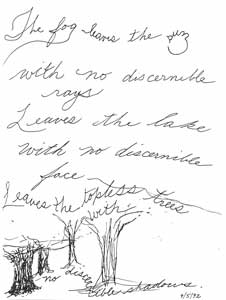 The fog leaves the sun
with no discernible
rays
Leaves the lake
with no discernible
face
Leaves the topless trees
with
no discernible shadows.
4/5/92